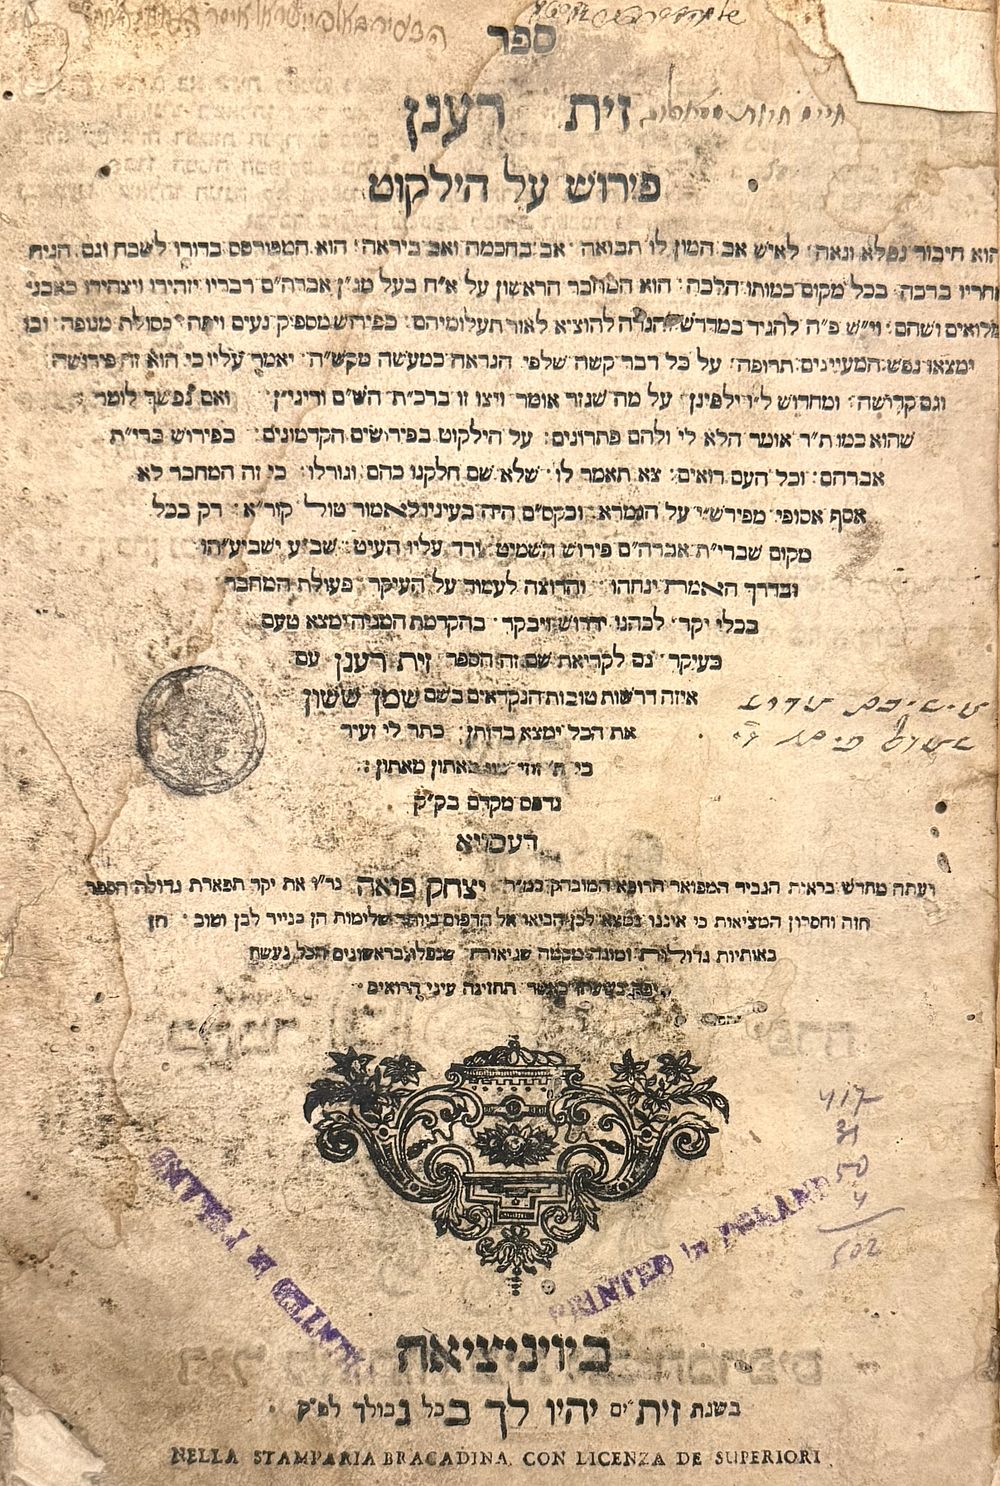 ספר
זית רענן
פירוש על הילקוט
הוא חיבור נפלא ונאה׃ לאיש אב המון לו תבואה׳ אב בחכמה ואב ביראה׃ הוא המפורסם בדורו לשבח וגם הניח
אחריו ברכה׃ בכל מקום כמותו הלכה׃ הוא המחבר הראשון על א״ח בעל מג״ן אברה״ם דבריו יזהירו ויצהירו כאבני
מלואים ושהם׃ וי״ש פ״ה להגיד במדרש הגדה להוציא לאור תעלומיהם׃ בפירוש מספיק נעים ויפה׳ כסולת מנופה׃ ובו
ימצאו נפש המעיינים תרופה׳ על כל דבר קשה שלפי הנראה כמעשה מקש״ה׃ יאמר עליו כי הוא זה פירושה
וגם קדושה׃ ומחדוש ל״ו ילפינן׳ על מה שגזר אומר ויצו זו ברכ״ת הש״ם ודיני״ן׳ ואם נפשך לומר
שהוא כמו ת״ר אומר הלא לי ולהם פתרונים׃ על הילקוט בפירושים הקדמונים׃ כפירוש ברי״ת
אברהם׃ וכל העם רואים׃ צא תאמר לו׳ שלא שם חלקנו כהם וגורלו׃ כי זה המחבר לא
אסף אסופי מפירש״י על הגמרא׳ ובקס״ם היה בעיניו לאמור טול קור״א׳ רק בכל
מקום שברי״ת אברה״ם פירוש השמיט׳ וירד עליו העיט׃ שב״ע ישביע״הו
ובדרך האמת ינחהו׳ והרוצה לעמוד על העיקר׳ פעולת המחבר
בכלי יקר׳ לכהנו ידרוש ויבקר׳ בהקדמת המגיה ימצא טעם
כעיקר׳ גם לקריאת שם זה הספר זית רענן עם
איזה דרשות טובות הנקראים בשם שמן ששון
את הכל ימצא בדותן׳ כתר לי זעיר
נדפס מקדם בק״ק
דעסויא
ועתה מחדש בראית הגביר המפואר הרופא המובהק כמ״ר יצחק פואה נר״ו את יקר תפארת גדולה הספר
הזה וחסרון המציאות כי איננו נמצא לכן הביאו אל הדפוס ביותר שלימות הן בנייר לבן וטוב הן
באותיות גדולות ומוגה מכמה שגיאות שנפלו בראשונים הכל נעשה
תחזינה עיני הרואים
PRINTED in POLAND
PRINTED in POLAND
417
31
50
4
502
בויניציאה
בשנת זיתים יהיו לך בכל גבולך לפ״ק
NELLA STAMPARIA BRAGADINA. CON LICENZA DE SUPERIORI